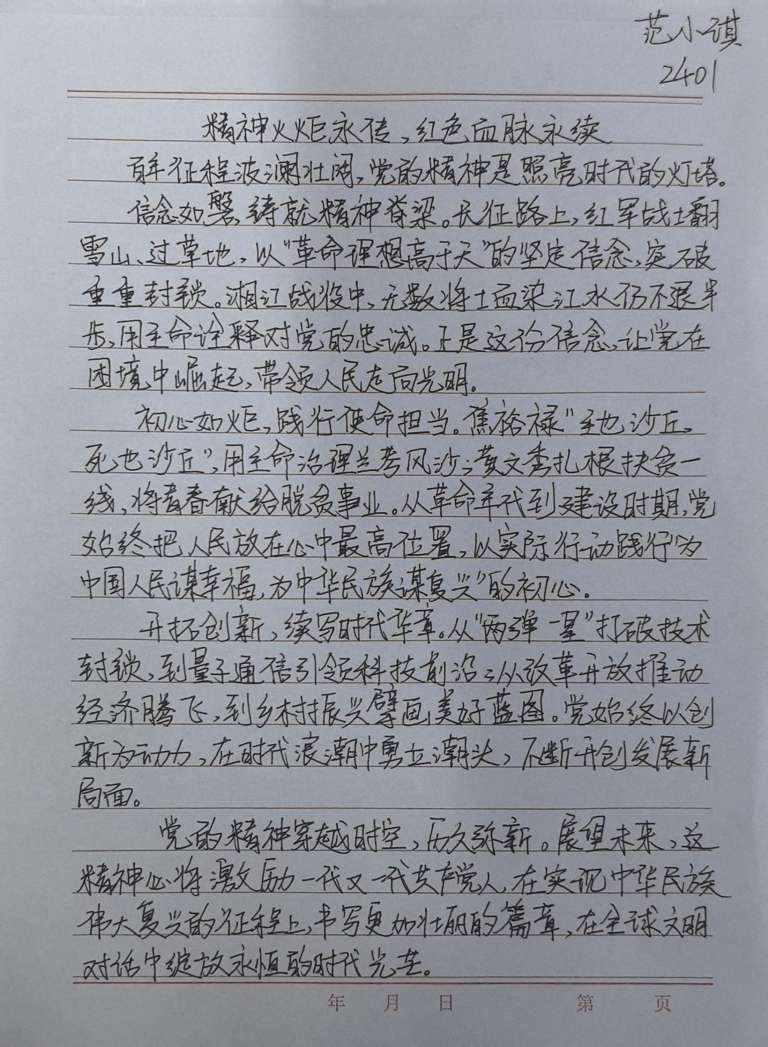 范小琪
2401
精神火炬永传,红色血脉永续
百年征程波澜壮阔,党的精神是照亮时代的灯塔。
信念如磐,铸就精神脊梁。长征路上,红军战士翻
雪山、过草地,以“革命理想高于天”的坚定信念,突破
重重封锁。湘江战役中,无数将士血染江水仍不退半
步,用生命诠释对党的忠诚。正是这份信念,让党在
困境中崛起,带领人民走向光明。
初心如炬,践行使命担当。焦裕禄“生也沙丘,
死也沙丘”,用生命治理兰考风沙;黄文秀扎根扶贫一
线,将青春献给脱贫事业。从革命年代到建设时期,党
始终把人民放在心中最高位置,以实际行动践行“为
中国人民谋幸福,为中华民族谋复兴”的初心。
开拓创新,续写时代华章。从“两弹一星”打破技术
封锁,到量子通信引领科技前沿;从改革开放推动
经济腾飞,到乡村振兴擘画美好蓝图。党始终以创
新为动力,在时代浪潮中勇立潮头,不断开创发展新
局面。
党的精神穿越时空,历久弥新。展望未来,这
精神必将激励一代又一代共产党人,在实现中华民族
伟大复兴的征程上,书写更加壮丽的篇章,在全球文明
对话中绽放永恒的时代光芒。
年 月 日 第 页